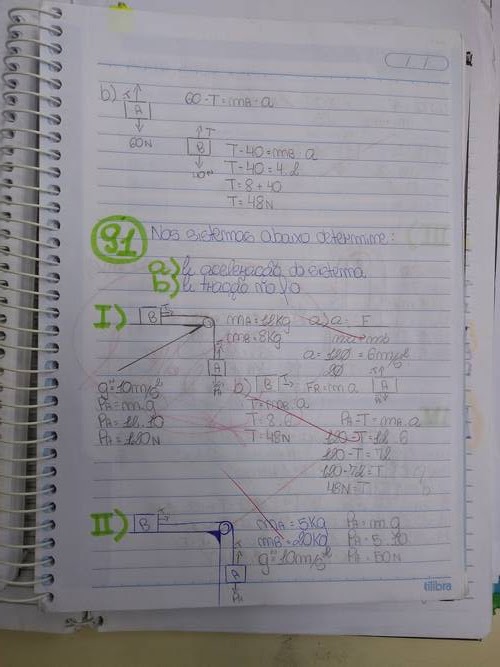 b) T
A
60N
60-T=mB.a
T
B
40N
T-40=mB.a
T-40=4.2
T=8+40
T=48N
81 Nos sistemas abaixo determine:
a) A aceleração do sistema
b) A tração no fio
I) B T mA=12kg a) a= F
mB=8kg mA+mB
a=120=6m/s²
20
A
PA
g=10m/s²
PA=m.g
PA=12.10
PA=120N
b) B T FR=m.a A
T=mB.a
T=8.6
T=48N
PA-T=mA.a
120-T=12.6
120-T=72
120-72=T
48N=T
II) B T mA=5kg PA=m.g
mB=20kg PA=5.10
g=10m/s² PA=50N
A
PA
tilibra